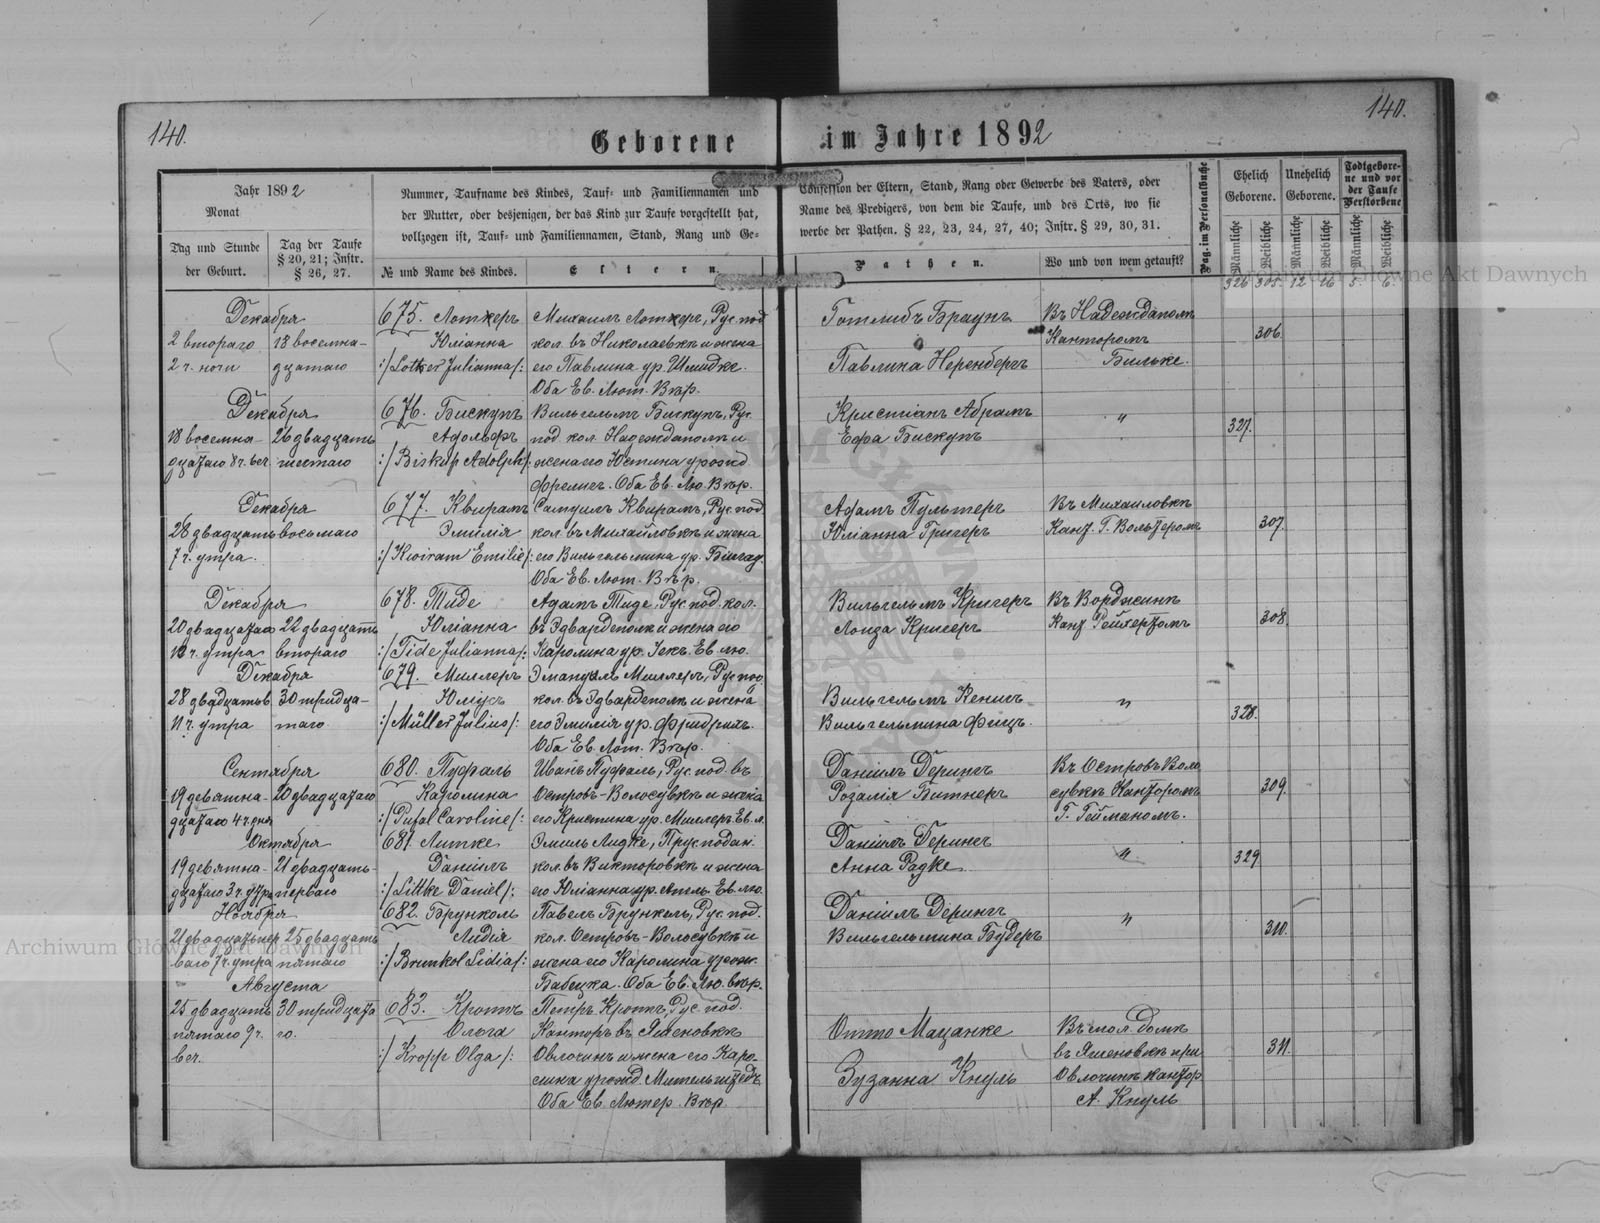 140.
140.
Geborene im Jahre 1892
Jahr 1892
Monat
Tag und Stunde
der Geburt.
Tag der Taufe
§ 20, 21; Instr.
§ 26, 27.
Nummer, Taufname des Kindes, Tauf- und Familiennamen und
der Mutter, oder desjenigen, der das Kind zur Taufe vorgestellt hat,
vollzogen ist, Tauf- und Familiennamen, Stand, Rang und Ge-
№ und Name des Kindes.
Eltern.
Confession der Eltern, Stand, Rang oder Gewerbe des Vaters, oder
Name des Predigers, von dem die Taufe, und des Orts, wo sie
werbe der Pathen. § 22, 23, 24, 27, 40; Instr. § 29, 30, 31.
Pathen.
Wo und von wem getauft?
Pag. im Personalbuche
Ehelich
Geborene.
Unehelich
Geborene.
Todtgebore-
ne und vor
der Taufe
Verstorbene
Männliche
Weibliche
Männliche
Weibliche
Männliche
Weibliche
326 305 12 16 5 6
Декабря
2 втораго
2 ч. ночи
18 восемна-
дцатаго
675. Лоткеръ
Юліанна
:/Lotker Julianna/:
Михаилъ Лоткеръ, Рус. под.
кол. въ Николаевкѣ и жена
его Павлина ур. Шмидке.
Оба Ев. Лют. Вѣр.
Готлибъ Браунъ
Павлина Неренбергъ
Въ Надеждаполѣ
Канторомъ
Бильке.
306.
Декабря
18 восемна-
дцатаго 8 ч. веч.
26 двадцать
шестаго
676. Бискупъ
Адольфъ
:/Biskup Adolph/:
Вильгельмъ Бискупъ, Рус.
под. кол. Надеждаполѣ и
жена его Юстина урожд.
Фрелих. Оба Ев. Лю. Вѣр.
Кристіанъ Абрамъ
Ефа Бискупъ
"
327.
Декабря
28 двадцать восьмаго
7 ч. утра.
677. Квирамъ
Эмилія
:/Kwiram Emilie/:
Самуилъ Квирамъ, Рус. под.
кол. въ Михайловкѣ и жена
его Вильгельмина ур.
Оба Ев. Лют. Вѣр.
Адамъ Пультеръ
Юліанна Григеръ
Въ Михаиловкѣ
Кант. Г. Вольтеромъ
307.
Декабря
20 двадцатаго
12 ч. утра
22 двадцать
втораго
678. Тиде
Юліанна
:/Tide Julianna/:
Адамъ Тиде, Рус. под. кол.
въ Эдвардполѣ и жена его
Каролина ур. Іекъ. Ев. лю.
Вильгельмъ Кригеръ
Лоиза Кригеръ
308.
Декабря
28 двадцать в
11 ч. утра
30 тридца-
таго.
679. Миллеръ
Юліусъ
:/Müller Julius/:
Эмануель Миллеръ, Рус. под.
кол. въ Эдвардполѣ и жена
его Эмилія ур. Фридрихъ.
Оба Ев. Лют. Вѣр.
Вильгельмъ Кенигъ
Вильгельмина Фицъ.
"
328.
Сентября
19 девятна-
дцатаго 4 ч. дня
20 двадцатаго
680. Пуфаль
Каролина
:/Pufal Caroline/:
Иванъ Пуфаль, Рус. под. въ
Островъ-Волосувкѣ и жена
его Кристина ур. Миллеръ. Ев. л.
Даніилъ Дерингъ
Розалія Битнеръ
Въ Островъ Воло
сувкѣ Канторомъ
Г. Гейманомъ.
309.
Октября
19 девятна-
дцатаго 3 ч. утра
21 двадцать-
перваго
681. Литке
Даніилъ
:/Littke Daniel/:
Эмиль Лидке, Прус. подан.
кол. въ Викторовкѣ и жена
его Юліанна ур. Ев. лю.
Даніилъ Дерингъ
Анна Радке
"
329
Ноября
21 двадцать пер
ваго 7 ч. утра
25 двадцать
пятаго
682. Брунколь
Лидія
:/Brunkol Lidia/:
Павелъ Брункель, Рус. под.
кол. Островъ-Волосувкѣ и
жена его Каролина урож.
Бабецка. Оба Ев. Лю. вѣр.
Даніилъ Дерингъ
Вильгельмина Будеръ
"
310.
Августа
25 двадцать
пятаго 9 ч.
веч.
30 тридцата
го.
683. Кроппъ
Ольга
:/Kropp Olga/:
Петръ Кроппъ, Рус. под.
Канторъ въ Яшеновкѣ
Овлочинъ и жена его Каро-
лина урожд. Мительштедъ
Оба Ев. Лютер. Вѣр.
Отто Мацанке
Зузанна Кнуль
Въ мол. домѣ
въ Яшеновкѣ при
Овлочинѣ кантор
А. Кнуль
311.
Archiwum Główne Akt Dawnych
Archiwum Główne Akt Dawnych